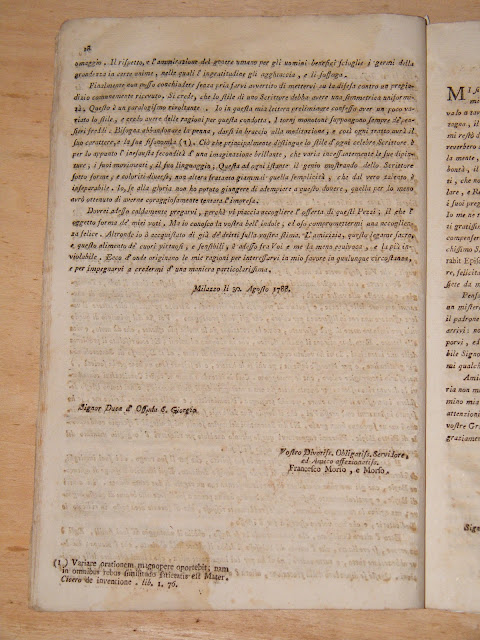 28
omaggio. Il rispetto, e l'ammirazione del genere umano per gli uomini benefici scioglie i germi della
grandezza in certe anime, nelle quali l'ingratitudine gli agghiaccia, e li suffoga.
Finalmente non posso conchiudere senza pria farvi avvertito di mettervi su la difesa contro un pregiu-
dizio comunemente ricevuto. Si crede, che lo stile di uno Scrittore debba avere una simmetrica uniformi-
tà. Questo è un paralogismo rivoltante. Io in questa mia lettera preliminare confesso aver un poco va-
riato lo stile, e credo avere delle ragioni per questa condotta. I torni monotoni suppongono sempre de' pen-
sieri freddi. Bisogna abbandonare la penna, darsi in braccio alla meditazione, e così ogni tratto avrà il
suo carattere, e la sua fisonomia (1). Ciò che principalmente distingue lo stile d'ogni celebre Scrittore è
per lo appunto l' inesausta fecondità d' una imaginazione brillante, che varia incessantemente le sue dipin-
ture, i suoi movimenti, ed il suo linguaggio. Questo ad ogni istante il genio mostrando dello Scrittore
sotto forme, e coloriti diversi, non altera frattanto giammai quella semplicità, che dal vero talento è
inseparabile. Io, se alla gloria non ho potuto giungere di adempiere a questo dovere, quella per lo meno
avrò ottenuto di averne coraggiosamente tentata l' impresa.
Dovrei adesso caldamente pregarvi, perchè vi piaccia accogliere l'offerta di questi Pezzi, il che l'
oggetto forma de' miei voti. Ma io conosco la vostra bell' indole, ed oso compromettermi una accoglien-
za felice. Altronde io è acquistato di già de' dritti sulla vostra stima. L' amicizia, questo legame sacro,
e questo alimento di cuori virtuosi, e sensibili, è adesso fra Voi e me la meno equivoca, e la più in-
violabile. Ecco d' onde originano le mie ragioni per interessarvi in mio favore in qualunque circostanza,
e per impegnarvi a credermi d' una maniera particolarissima.
Milazzo li 30. Agosto 1788.
Signor Duca d' Ossada S. Giorgio.
Vostro Divotiss. Obligatiss. Servidore,
ed Amico affezionatiss.
Francesco Morso, e Morso.
(1.) Variare orationem magnopere oportebit; nam
in omnibus rebus similitudo satietatis est Mater.
Cicero de inventione. lib. 1. 76.